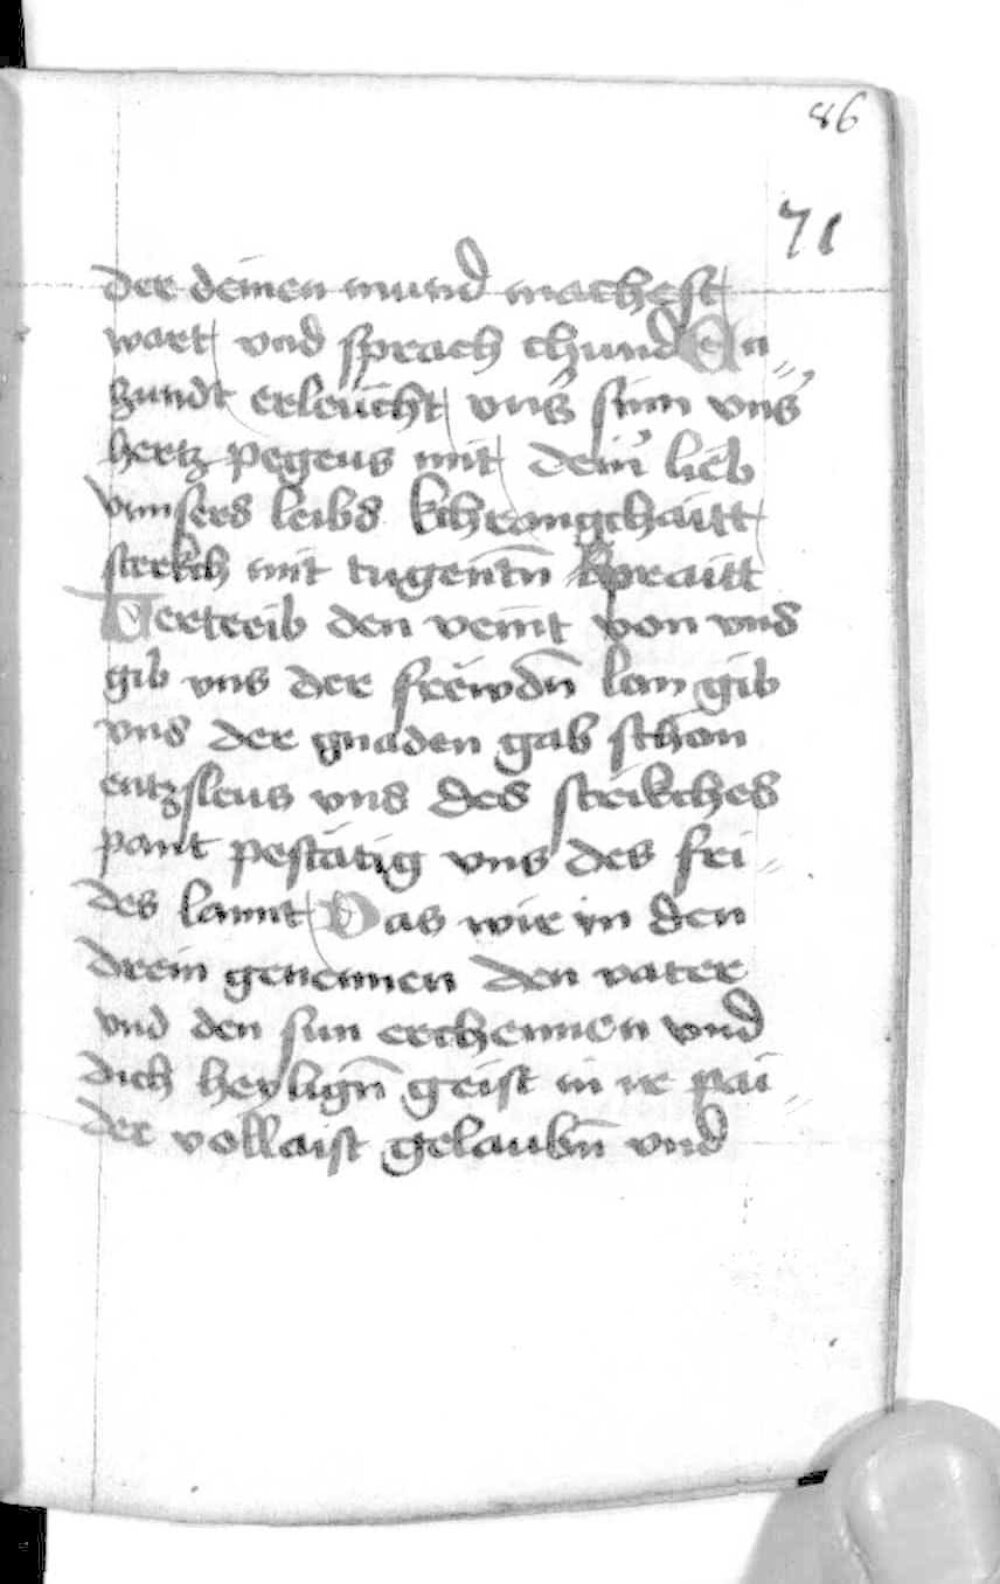 86
71
der deinen mund machest
wart vnd sprach chund En
zundt erleücht vns sinn vns
hertz pegeus mit dein lieb
vnnsers leibs kchrangchaitt
sterkch mit tugentn̄ praitt
Vertreib den veint von vns
gib vns der frëwdn̄ lan gib
vns der gnaden gab schon
entzsleus vns des streikches
pant pestätig vns des fri
des lannt Das wir in den
drein genennen den vater
vnd den sun erchennen vnd
dich heylign̄ geist in ir pai
der vollaist gelaubn̄ vnd